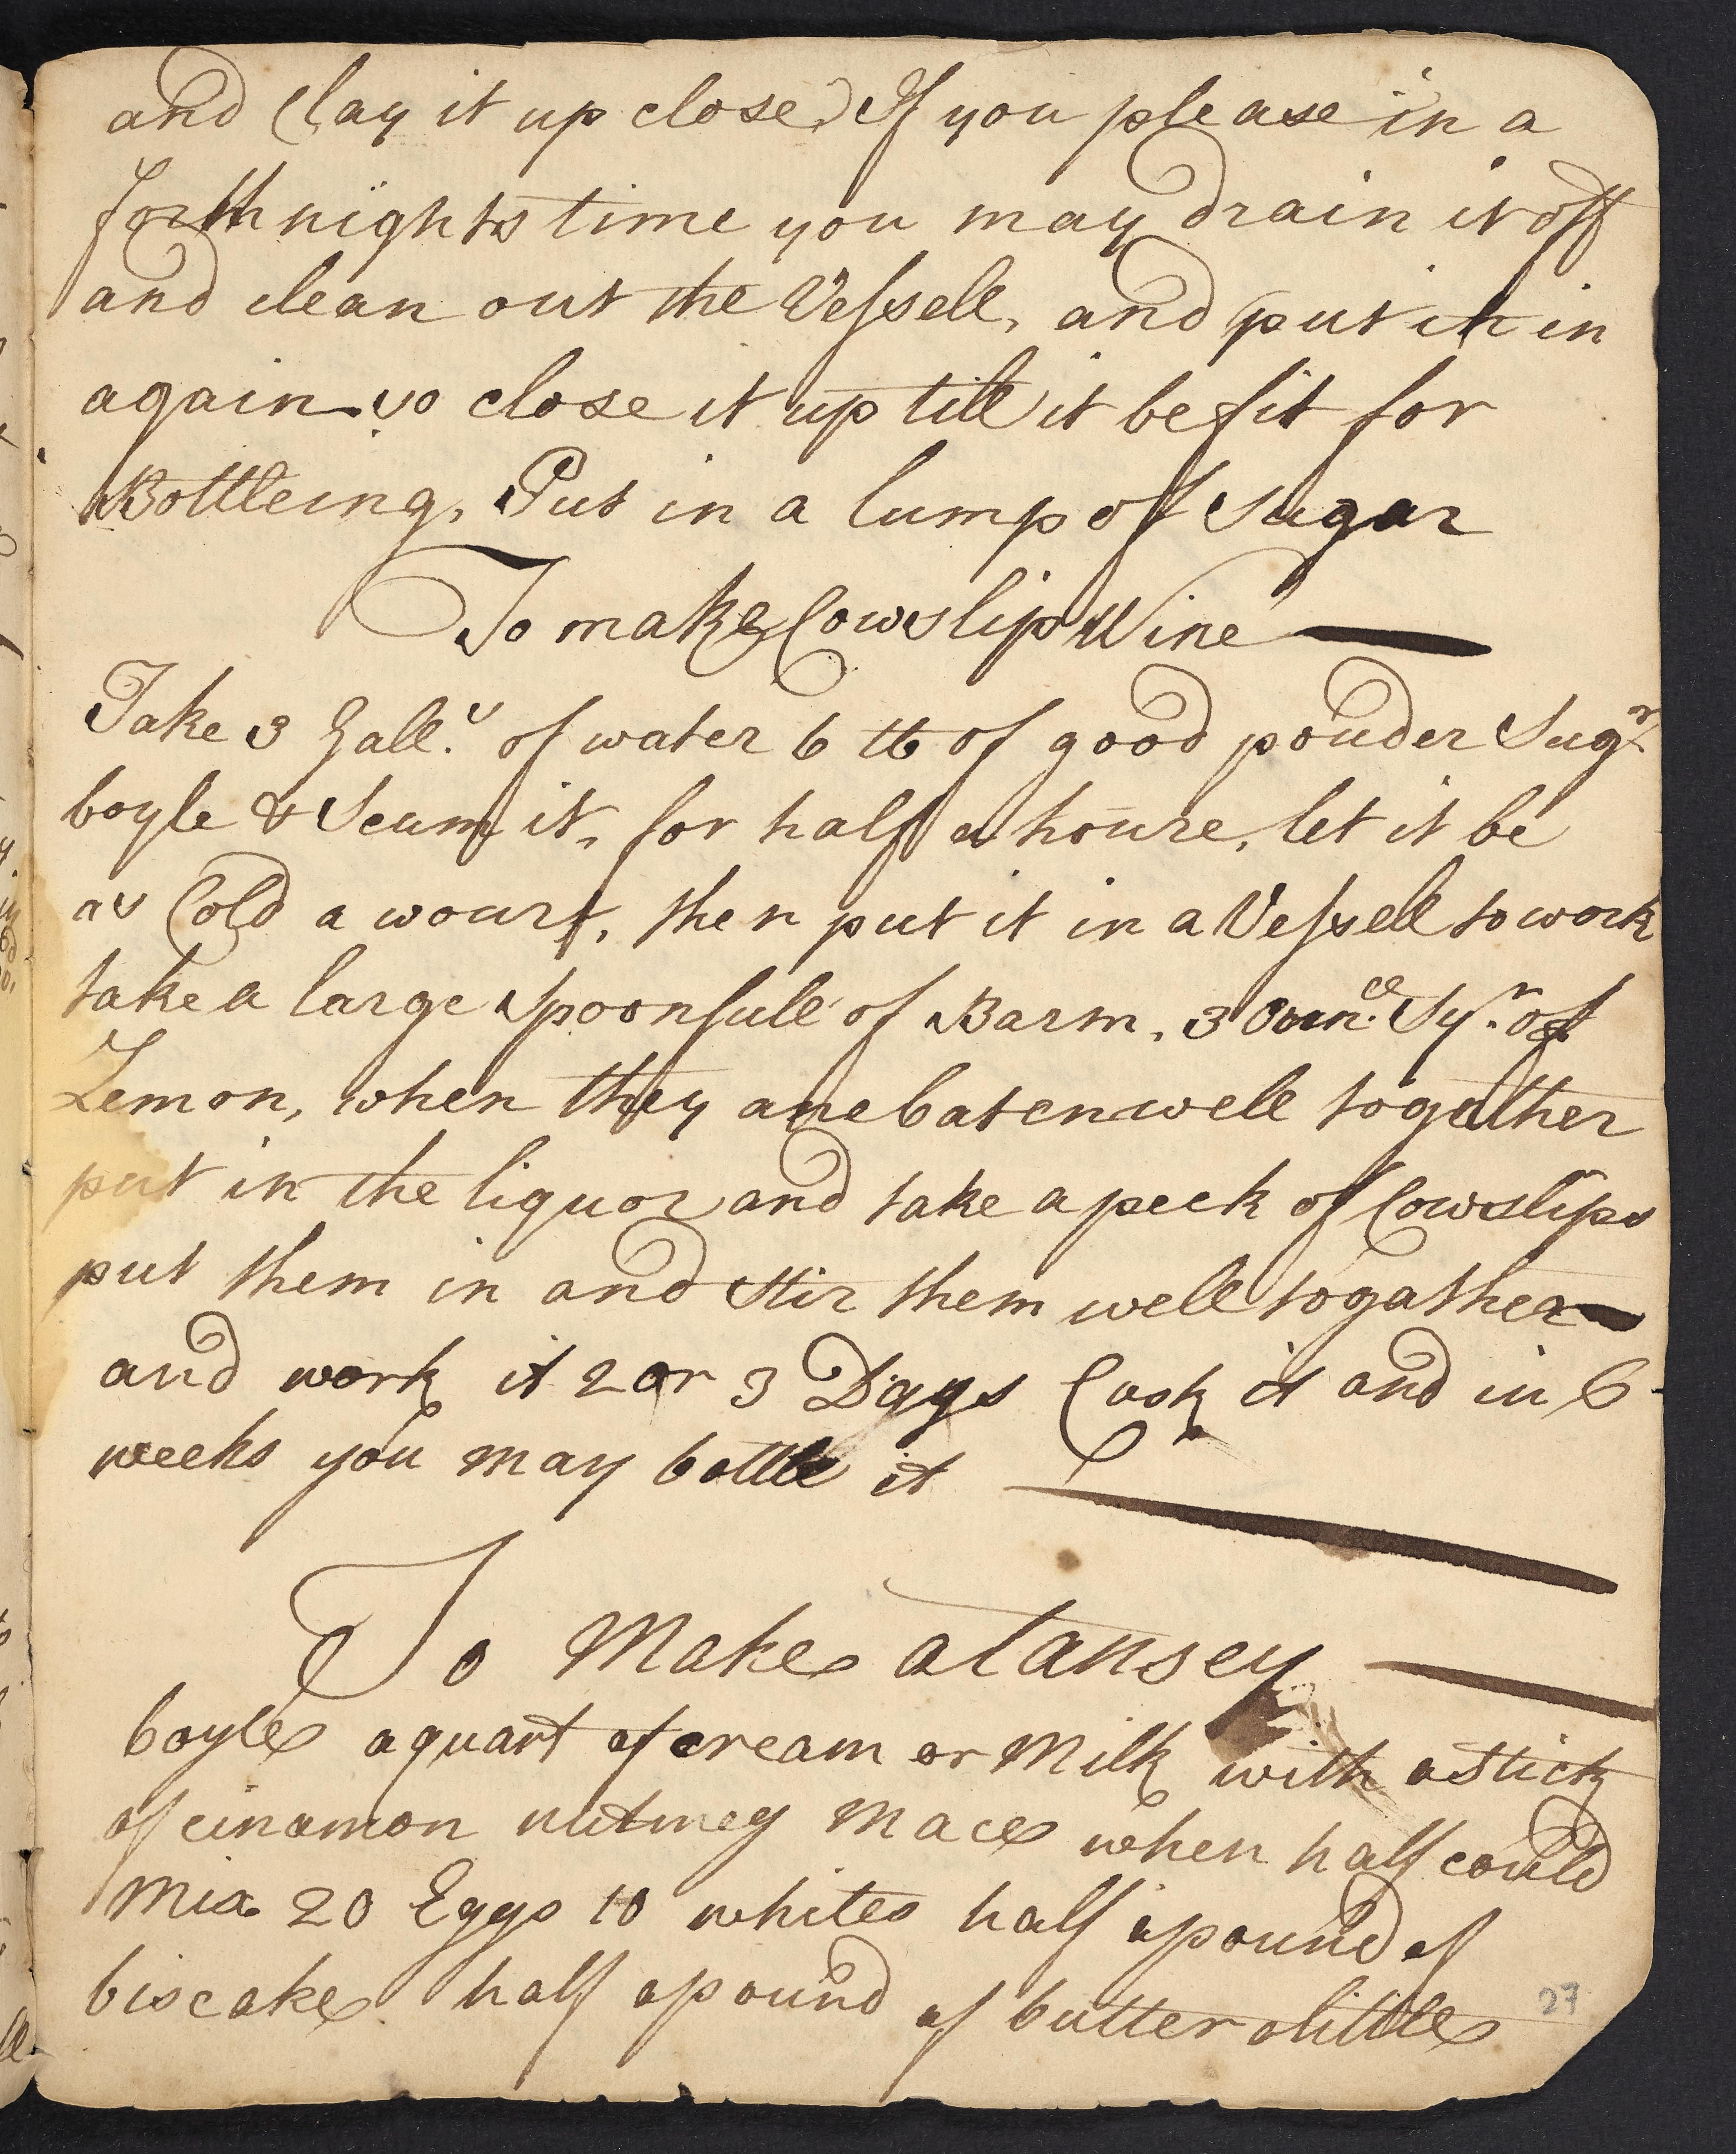 and Clay it up close, If you please in a
forthnights time you may drain it off
and clean out the Vessell, and put it in
again so close it up till it be fit for
Bottleing, Put in a lump of Sugar
To make Cowslip Wine
Take 3 Gall.s of water 6 lb of good pouder Sugr
boyle & Scum it, for half a houre, let it be
as Cold a wourt, then put it in a Vessell to work
take a large Spoonfull of Barm, 3 Ounce Syr. of
Lemon, when they are baten well together
put in the liquor and take a peck of Cowslips
put them in and Stir them well togather
and work it 2 or 3 Days Cask it and in 6
weeks you may bottle it
To Make a Tansey
boyle a quart of cream or Milk with a Stick
of cinamon nutmeg Mace when half could
Mix 20 Eggs 10 whites half a pound of
biscake half a pound of butter a little
27